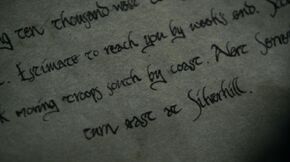 ten thousand
Estimate to reach you by weeks end.
moving troops south by coast. Next
turn east at Silverhill.